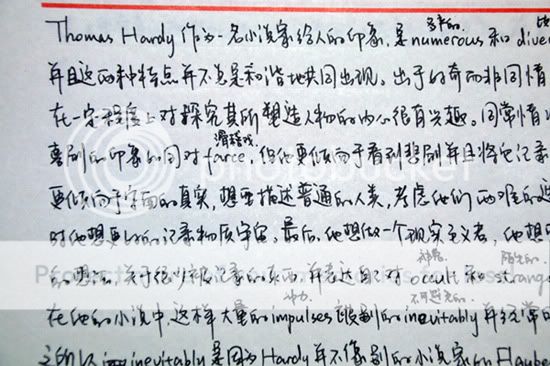 多产的.
Thomas Hardy 作为一名小说家给人的印象,是numerous 和 diver
并且这两种特点并不总是和谐地共同出现。出于好奇而非同情
在一定程度上对探究其所塑造人物的内心很有兴趣。同常情
滑稽戏.
喜剧的印象如同对farce,但他更倾向于看到悲剧并且将它记录
更倾向于字面的真实,想要描述普通的人类,考虑他们两难的
时他想要的记录物质宇宙。最后,他想做一个现实主义者,他想
神秘 陌生的.
的 关于很少被记录的东西,并表达自己对 occult 和 strange
冲力. 不可避免的.
在他的小说中,这样大量的impulses 被别的inevitably 并经常
之的 inevitably 是因为 Hardy 并不像别的小说家如 Flaube